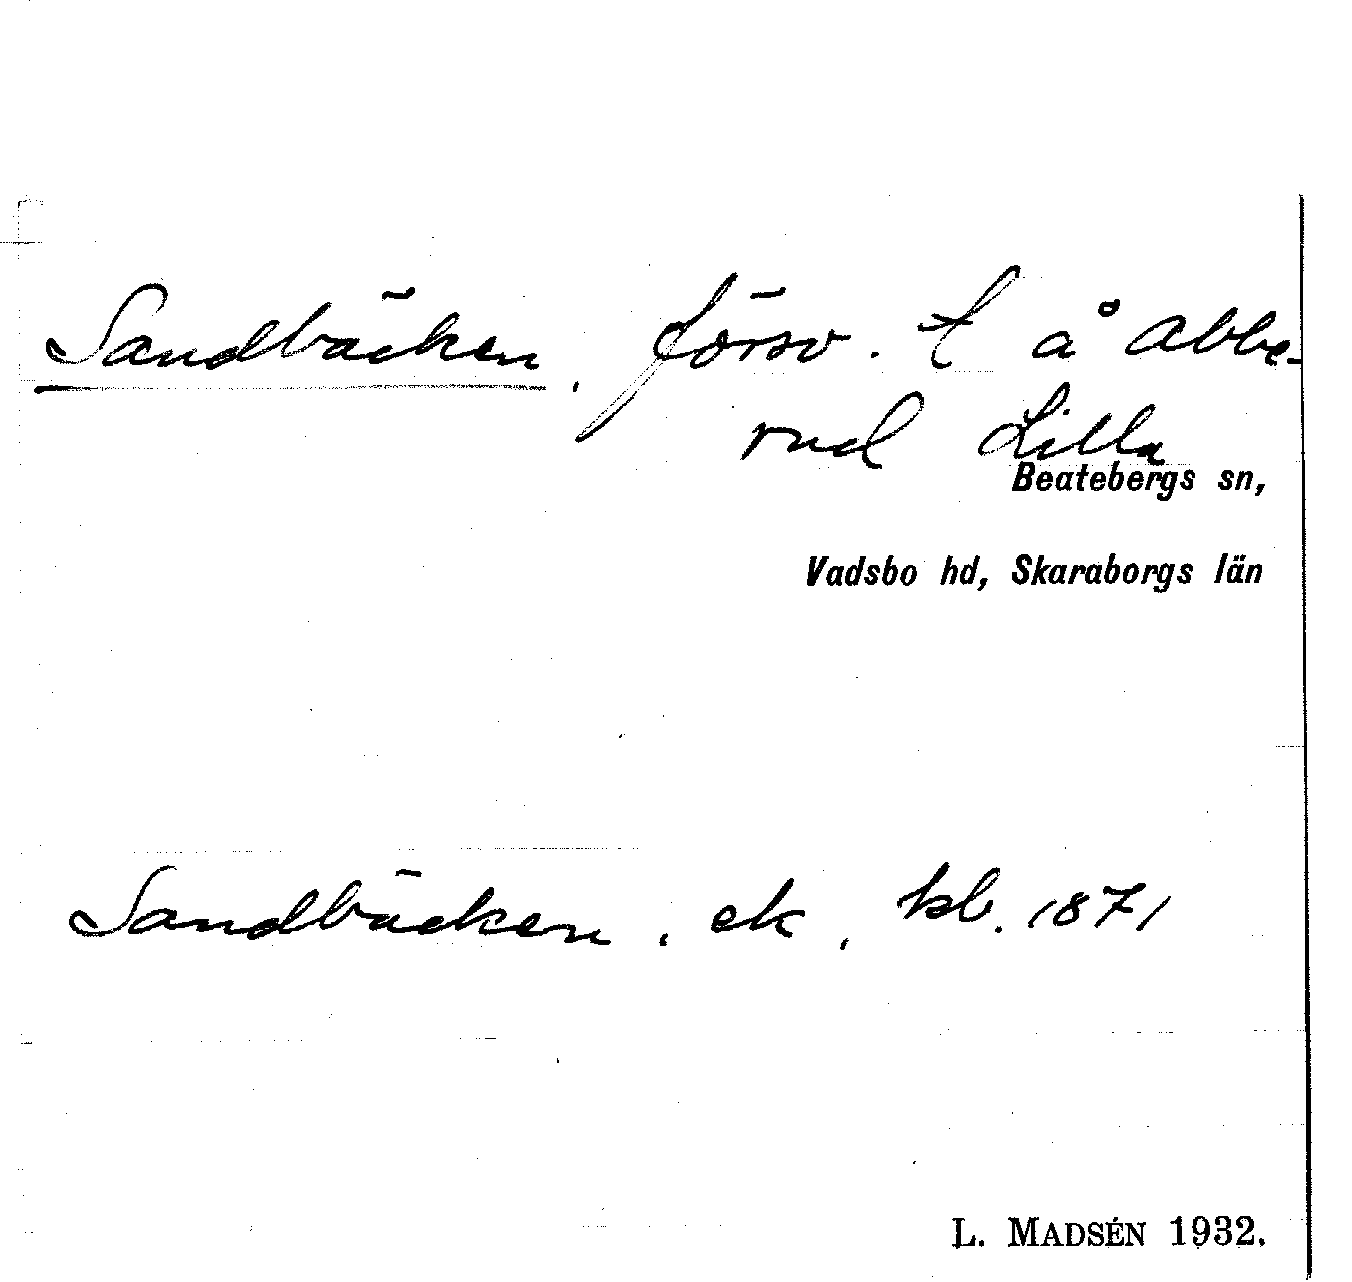 Sandbäcken, försv. t å Abbe-
rud Lilla
Beatebergs sn,
Vadsbo hd, Skaraborgs län
Sandbäcken, ek, kb. 1871
L. MADSÉN 1932.